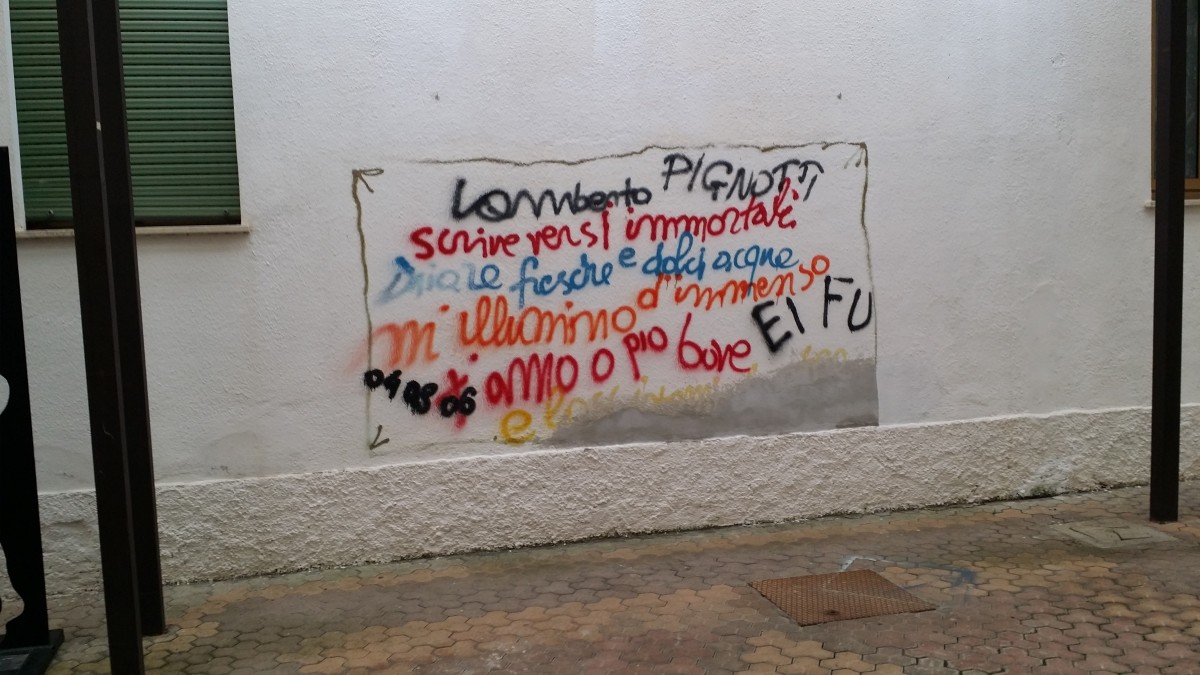 Lamberto PIGNOTTI
scrive versi immortali
chiare fresche e dolci acque
m'illumino d'immenso
EI FU
t'amo o pio bove
04 08 06
e